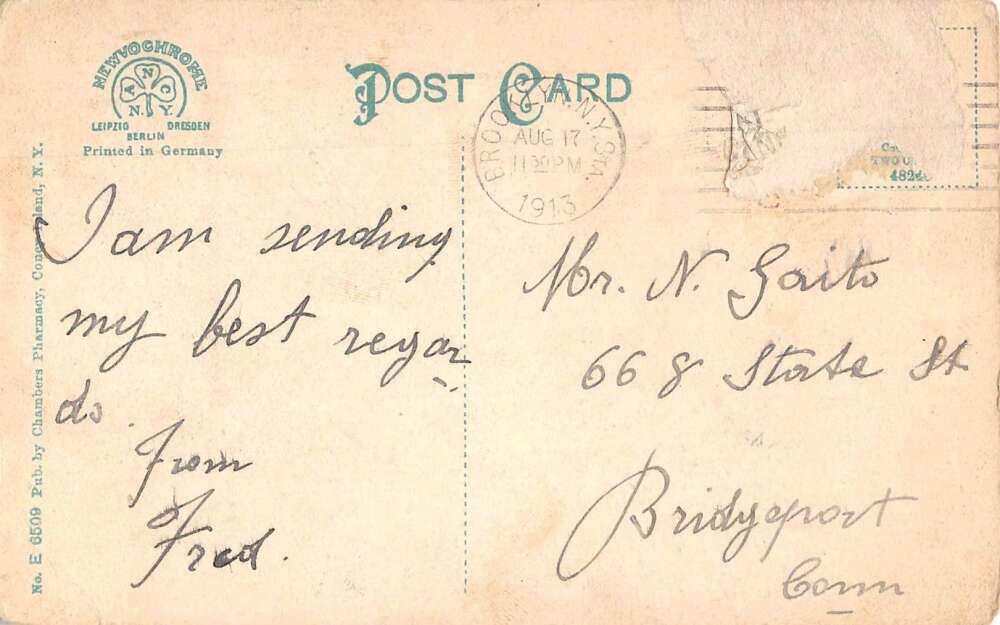 NEWVOCHROME
A N C
N.Y.
LEIPZIG DRESDEN
BERLIN
Printed in Germany
POST CARD
BROOKLYN, N.Y. STA.
AUG 17
11 30 PM
1913
TWO C
4824
No. E 6509 Pub. by Chambers Pharmacy, Coney Island, N. Y.
I am sending
my best regar
ds.
From
Fred.
Mr. N. Gaito
668 State St
Bridgeport
Conn